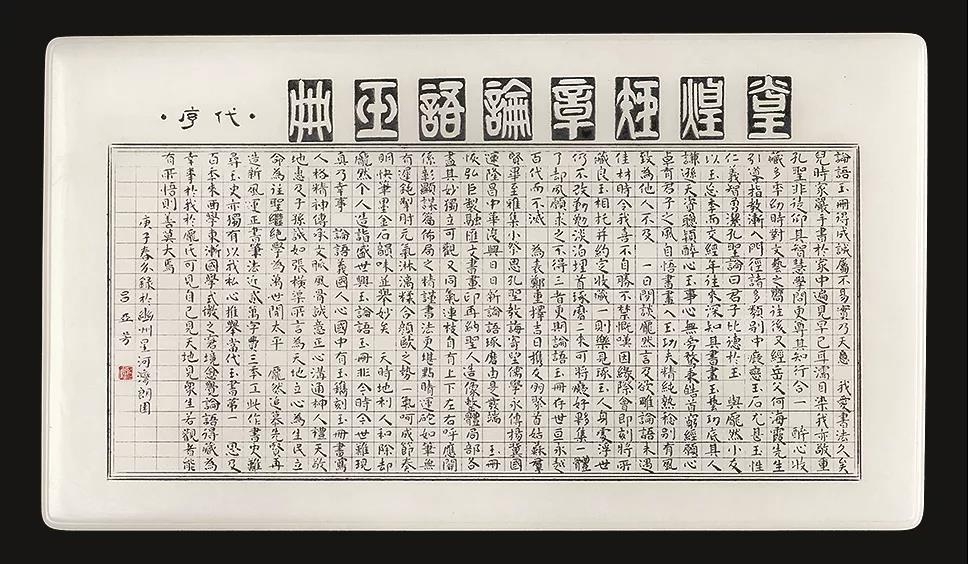 堂煌矩章論語玉冊
·代序·
論語玉冊得成誠屬不易實乃天恩 我愛書法久矣
兒時家嚴手書於家中遍見早已耳濡目染我亦敬重
孔聖非徒仰其智慧學問更尊其知行合一 醉心收
藏多年幼時對文藝之齋往後又經岳父何海霞先生
引導指教漸入門徑諸多類別中戀玉石尤甚玉性
仁義智勇潔孔聖論曰君子比德於玉 與龐然小友
以玉忘年而交經年往來深知其書畫玉藝功底其人
謙遜天資聰穎醉心玉事心無旁騖秉皓首窮經願心
卓有君子之風自悟書畫入玉功夫精純熟稔別有風
致為他人不及 一日閒談龐然言及欲雕論語未遇
佳材時令我喜不自勝不禁慨嘆因緣際會即刻將所
藏良玉相托并約定收藏 一則樂見琢玉人身處浮世
仍不改勤勉淡泊埋首琢磨二來可將癡好彩集一體
了却夙願求之不得三者更期論語玉冊存世亘永越
百代而不滅 為表鄭重擇吉日携文朋首姑蘇羣
賢畢至雅集小聚思孔聖教誨寄望儒學永傳揚冀國
運隆昌中華復興日日新論語琢磨由是發端 玉冊
恢弘巨製融匯文書畫印再納聖人造像整體局部各
盡其妙獨立可觀又同氣連枝自有上下左右呼應關
係彰顯謀篇佈局之精謹書法更堪點時運砣如筆無
有遲鈍掣肘元氣淋漓糅合顏歐之勢一氣呵成節奏
明快筆墨金石韻味並舉妙矣 天時地利人和除却
龐然个人造詣盛世興玉論語玉冊非今時今世難現
真乃幸事 論語義國人心國中有玉鐫刻玉冊書寫
人格精神傳承文脈風骨誠意正心溝通神人禮天敬
地惠及子孫誠如張橫渠所言為天地立心為生民立
命為往聖繼絕學為萬世開太平 龐然追慕先賢再
造新風運正書筆法近貳萬字費三年工此作書史難
尋玉史亦獨有以我私心推舉當代玉書第一 思及
百年來西學東漸國學式微之窘境愈覺論語得藏為
幸事於我於龐氏可見自己見天地見眾生若觀者能
有所悟則善莫大焉
庚子春分錄於幽州星河灣朗園
呂亞芳